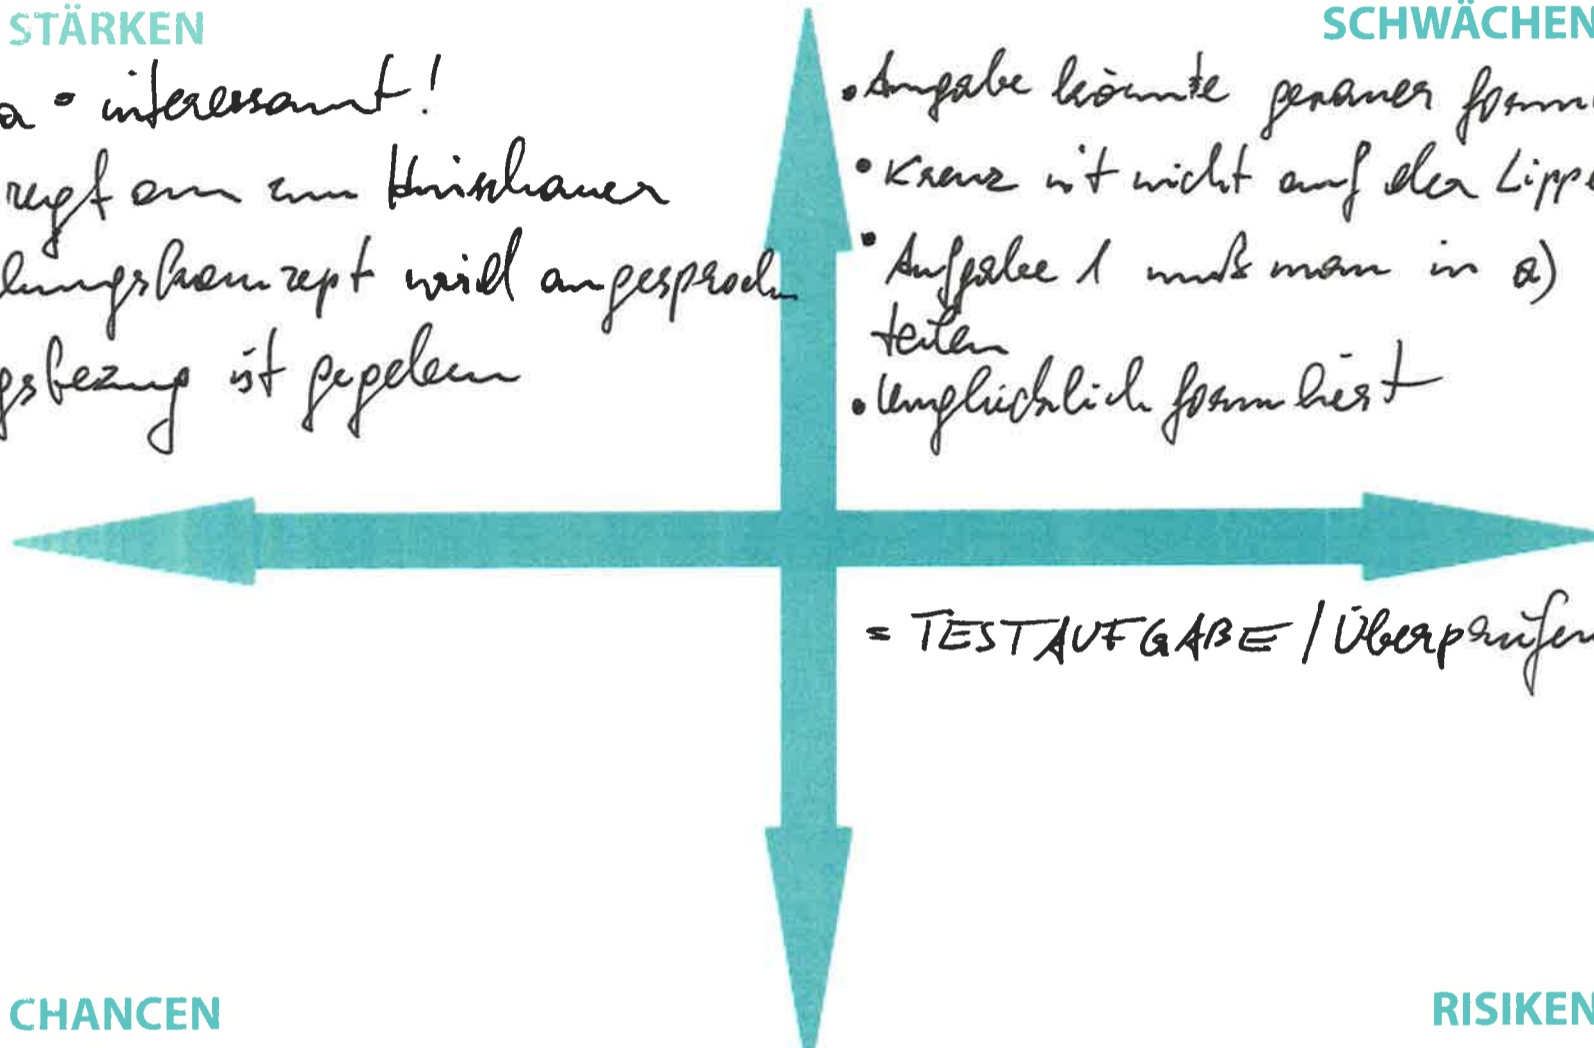 STÄRKEN
a • interessant!
regt an zum Hinschauen
lungskonzept wird angesproch
gsbezug ist gegeben
SCHWÄCHEN
• Angabe könnte genauer form
• Kreuz ist nicht auf der Lippe
• Aufgabe 1 muß man in a)
teilen
• Unglücklich formuliert
= TESTAUFGABE / Überprüfen
CHANCEN
RISIKEN